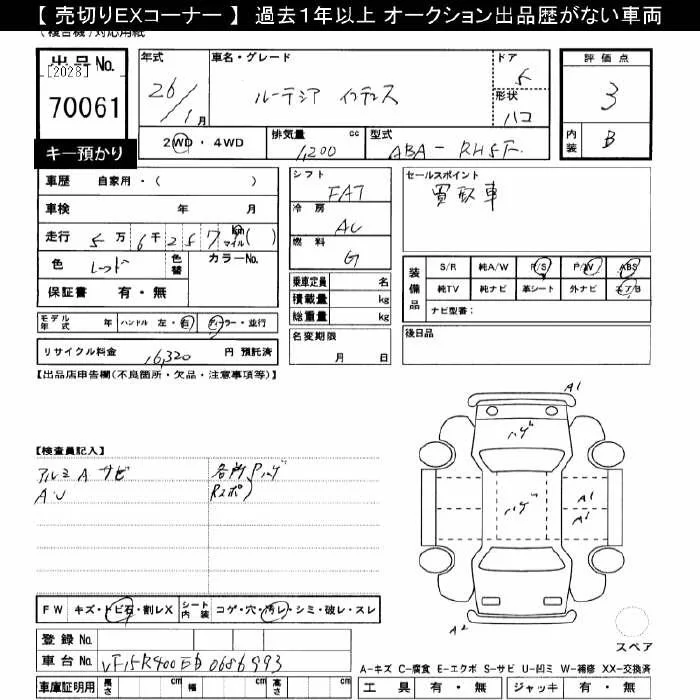 【 売切りEXコーナー 】 過去1年以上 オークション出品歴がない車両
(複合機)対応用紙
出品No. [2028]
70061
キー預かり
年式 26/1月
車名・グレード ルーテシア インテンス
ドア 5
形状 ハコ
評価点 3
内装 B
2WD・4WD
排気量 1,200 cc
型式 ABA-RH5F
車歴 自家用・( )
車検 年 月
走行 5万6千257 km マイル( )
色 レッド 色替 カラーNo.
保証書 有・無
シフト FAT
冷房 AC
燃料 G
乗車定員 名
積載量 kg
総重量 kg
セールスポイント
買取車
装備品 S/R 純A/W P/S P/W ABS
純TV 純ナビ 革シート 外ナビ エア/B
ナビ型番:
モデル年式 年 ハンドル 左・右 ディーラー・並行
名変期限 月 日
後日品
リサイクル料金 16,320 円 預託済
【出品店申告欄(不良箇所・欠品・注意事項等)】
A1
ハゲ
【検査員記入】
アルミA サビ 各所Pハゲ
AU Rスポ
ハゲ A1
A1
FW キズ・トビ石・割レX シート内装 コゲ・穴・汚レ・シミ・破レ・スレ
A2
スペア
登録No.
車台No. VF15R400ED0686993
A-キズ C-腐食 E-エクボ S-サビ U-凹ミ W-補修 XX-交換済
車庫証明用 長さ cm 幅 cm 高さ cm
工具 有・無 ジャッキ 有・無